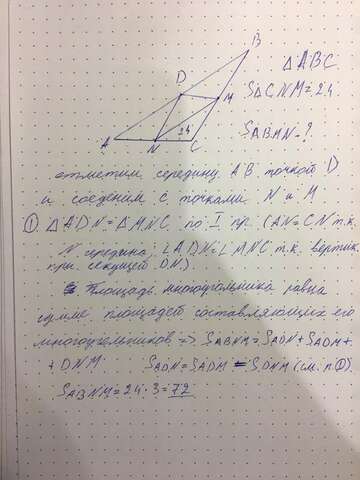 B
△ABC
D
S△CNM=24
M
24
A
N
C
SABMN-?
отметим середину AB точкой D
и соединим с точками N и M
① △ADN=△MNC по I пр. (AN=CN т.к.
N середина; ∠ADN=∠MNC т.к. вертик.
при секущей DN.)
Площадь многоугольника равна
сумме площадей составляющих его
многоугольников => SABNM=SADN+SADM+
+DNM SADN=SADM=SDNM (см. п.①).
SABNM=24·3=72